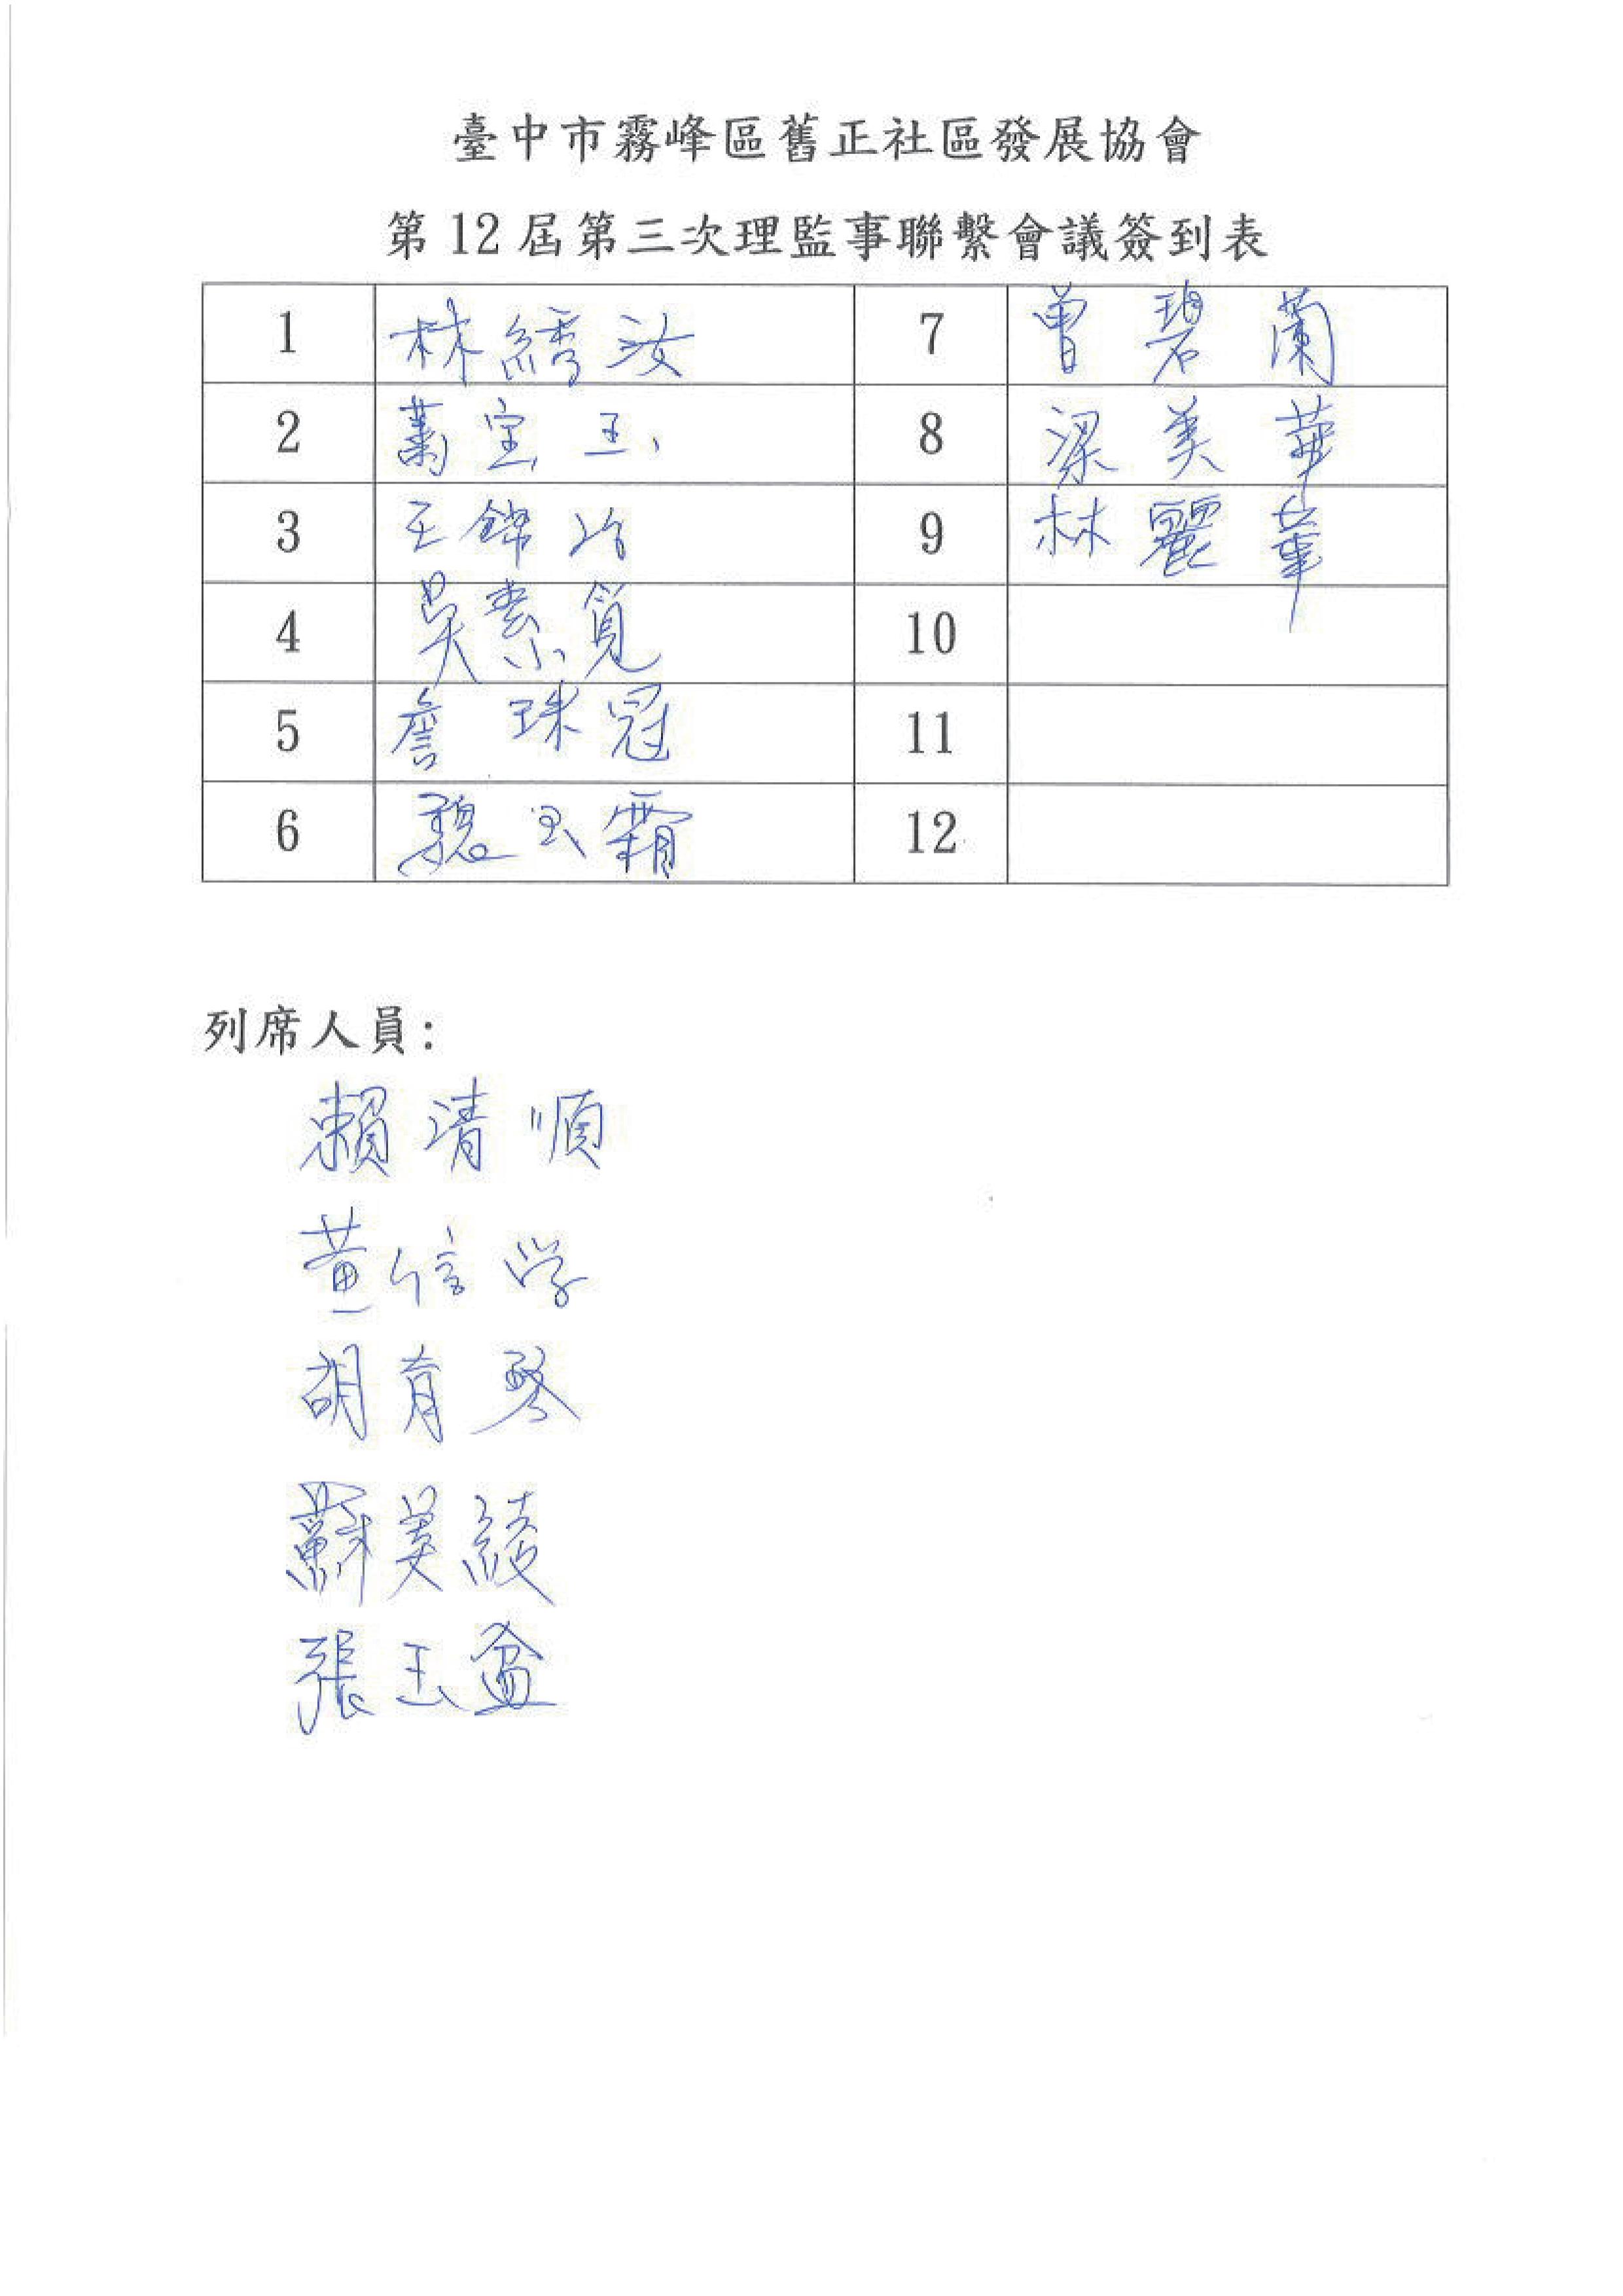 臺中市霧峰區舊正社區發展協會
第12屆第三次理監事聯繫會議簽到表
1 林繡汝 7 曾碧蘭
2 蕭宝玉 8 梁美華
3 王錦治 9 林麗華
4 吳素覓 10
5 詹珠冠 11
6 魏玉霜 12
列席人員:
賴清順
黃信学
胡育琴
蘇美綾
張玉